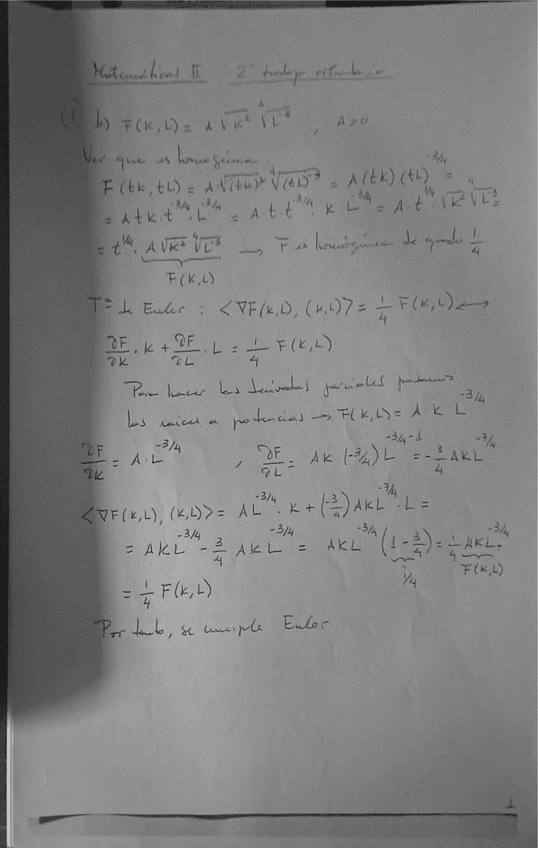 Matemáticas II 2º trabajo
① b) F(K,L) = A √K² ⁴√L⁻³ , A>0
Ver que es homogénea:
F(tK,tL) = A √(tK)² ⁴√(tL)⁻³ = A(tK)(tL)^-3/4 =
= A t K · t^-3/4 · L^-3/4 = A · t · t^-3/4 · K · L^-3/4 = A · t^1/4 √K² ⁴√L⁻³ =
= t^1/4 · A √K² ⁴√L⁻³ → F es homogénea de grado 1/4
F(K,L)
Tª de Euler : <∇F(K,L), (K,L)> = 1/4 F(K,L) ↔
∂F/∂K · K + ∂F/∂L · L = 1/4 F(K,L)
Para hacer las derivadas parciales pasamos
las raíces a potencias → F(K,L) = A · K · L^-3/4
∂F/∂K = A · L^-3/4 , ∂F/∂L = AK (-3/4) L^-3/4-1 = -3/4 AKL^-7/4
<∇F(K,L), (K,L)> = AL^-3/4 · K + (-3/4) AKL^-7/4 · L =
= AKL^-3/4 - 3/4 AKL^-3/4 = AKL^-3/4 (1 - 3/4) = 1/4 AKL^-3/4 =
1/4 F(K,L)
= 1/4 F(K,L)
Por tanto, se cumple Euler
1